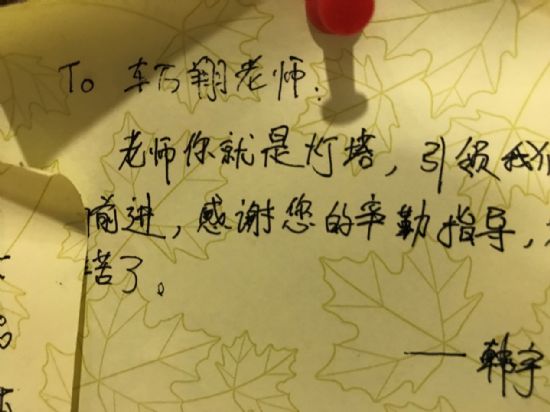 To 车万翔老师:
老师你就是灯塔，引领我们
前进，感谢您的辛勤指导，
苦了。
——韩宇